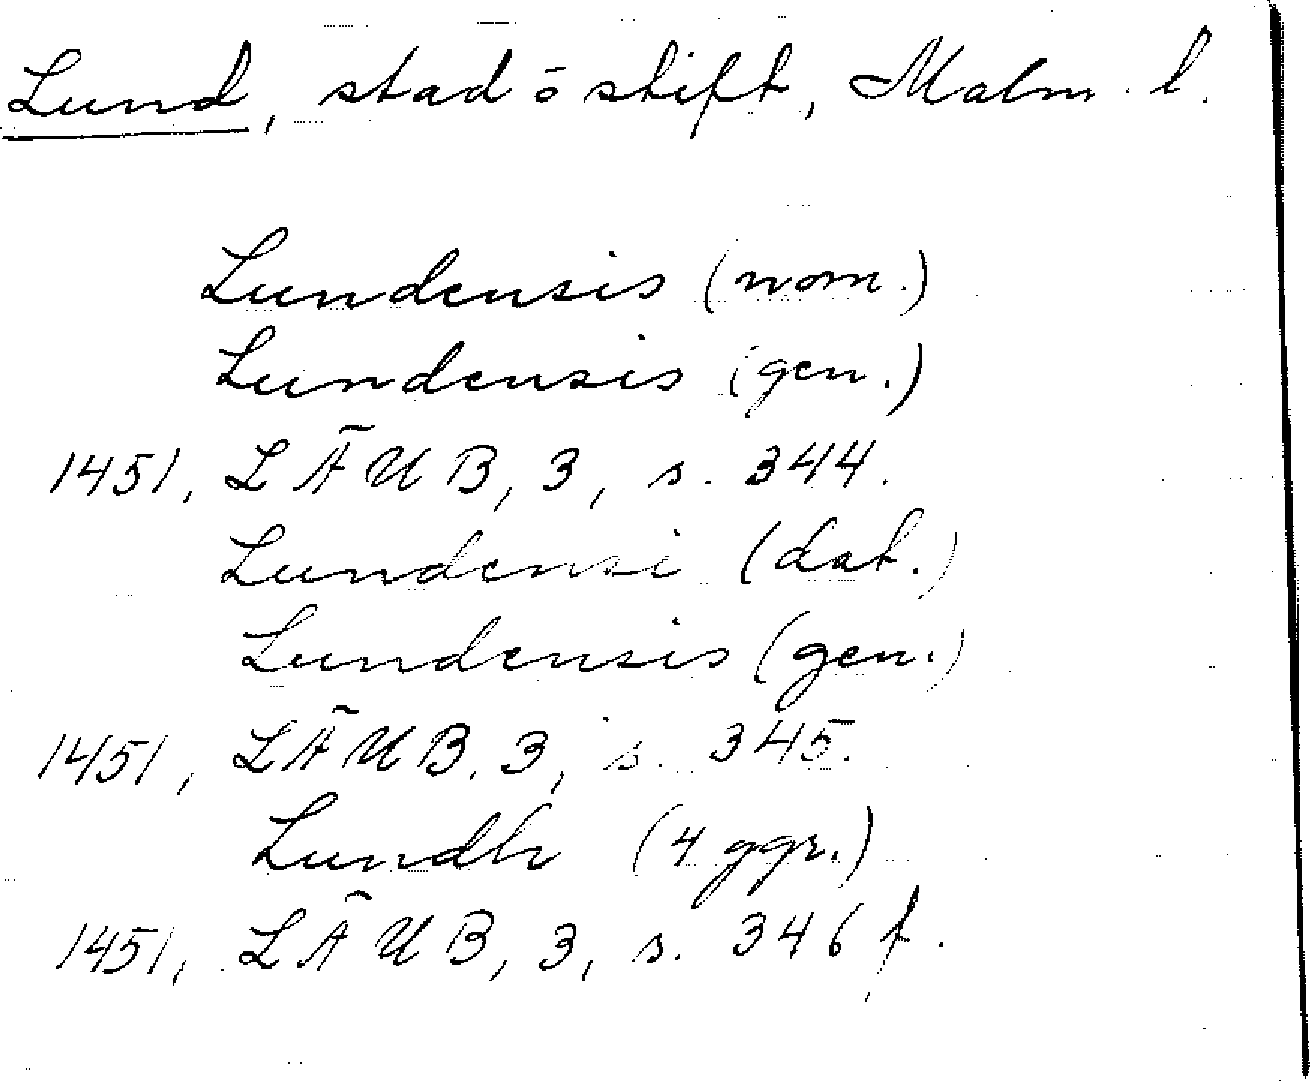 Lund, stad o stift, Malm. l.
Lundensis (nom.)
Lundensis (gen.)
1451, LÄUB, 3, s. 344.
Lundensi (dat.)
Lundensis (gen.)
1451, LÄUB, 3, s. 345.
Lundh (4 ggr.)
1451, LÄUB, 3, s. 346 f.